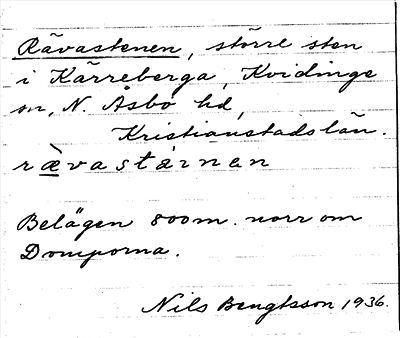 Rävastenen, större sten
i Kärreberga, Kvidinge
sn, N. Åsbo hd,
Kristianstads län.
ræ̀vastárnen
Belägen 800 m. norr om
Domporna.
Nils Bengtsson 1936.